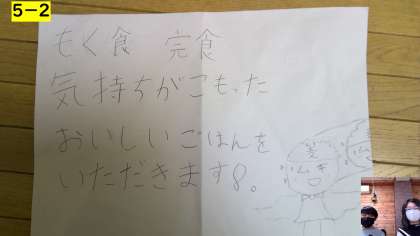 5-2
もく食 完食
気持ちがこもった
おいしいごはんを
いただきます。